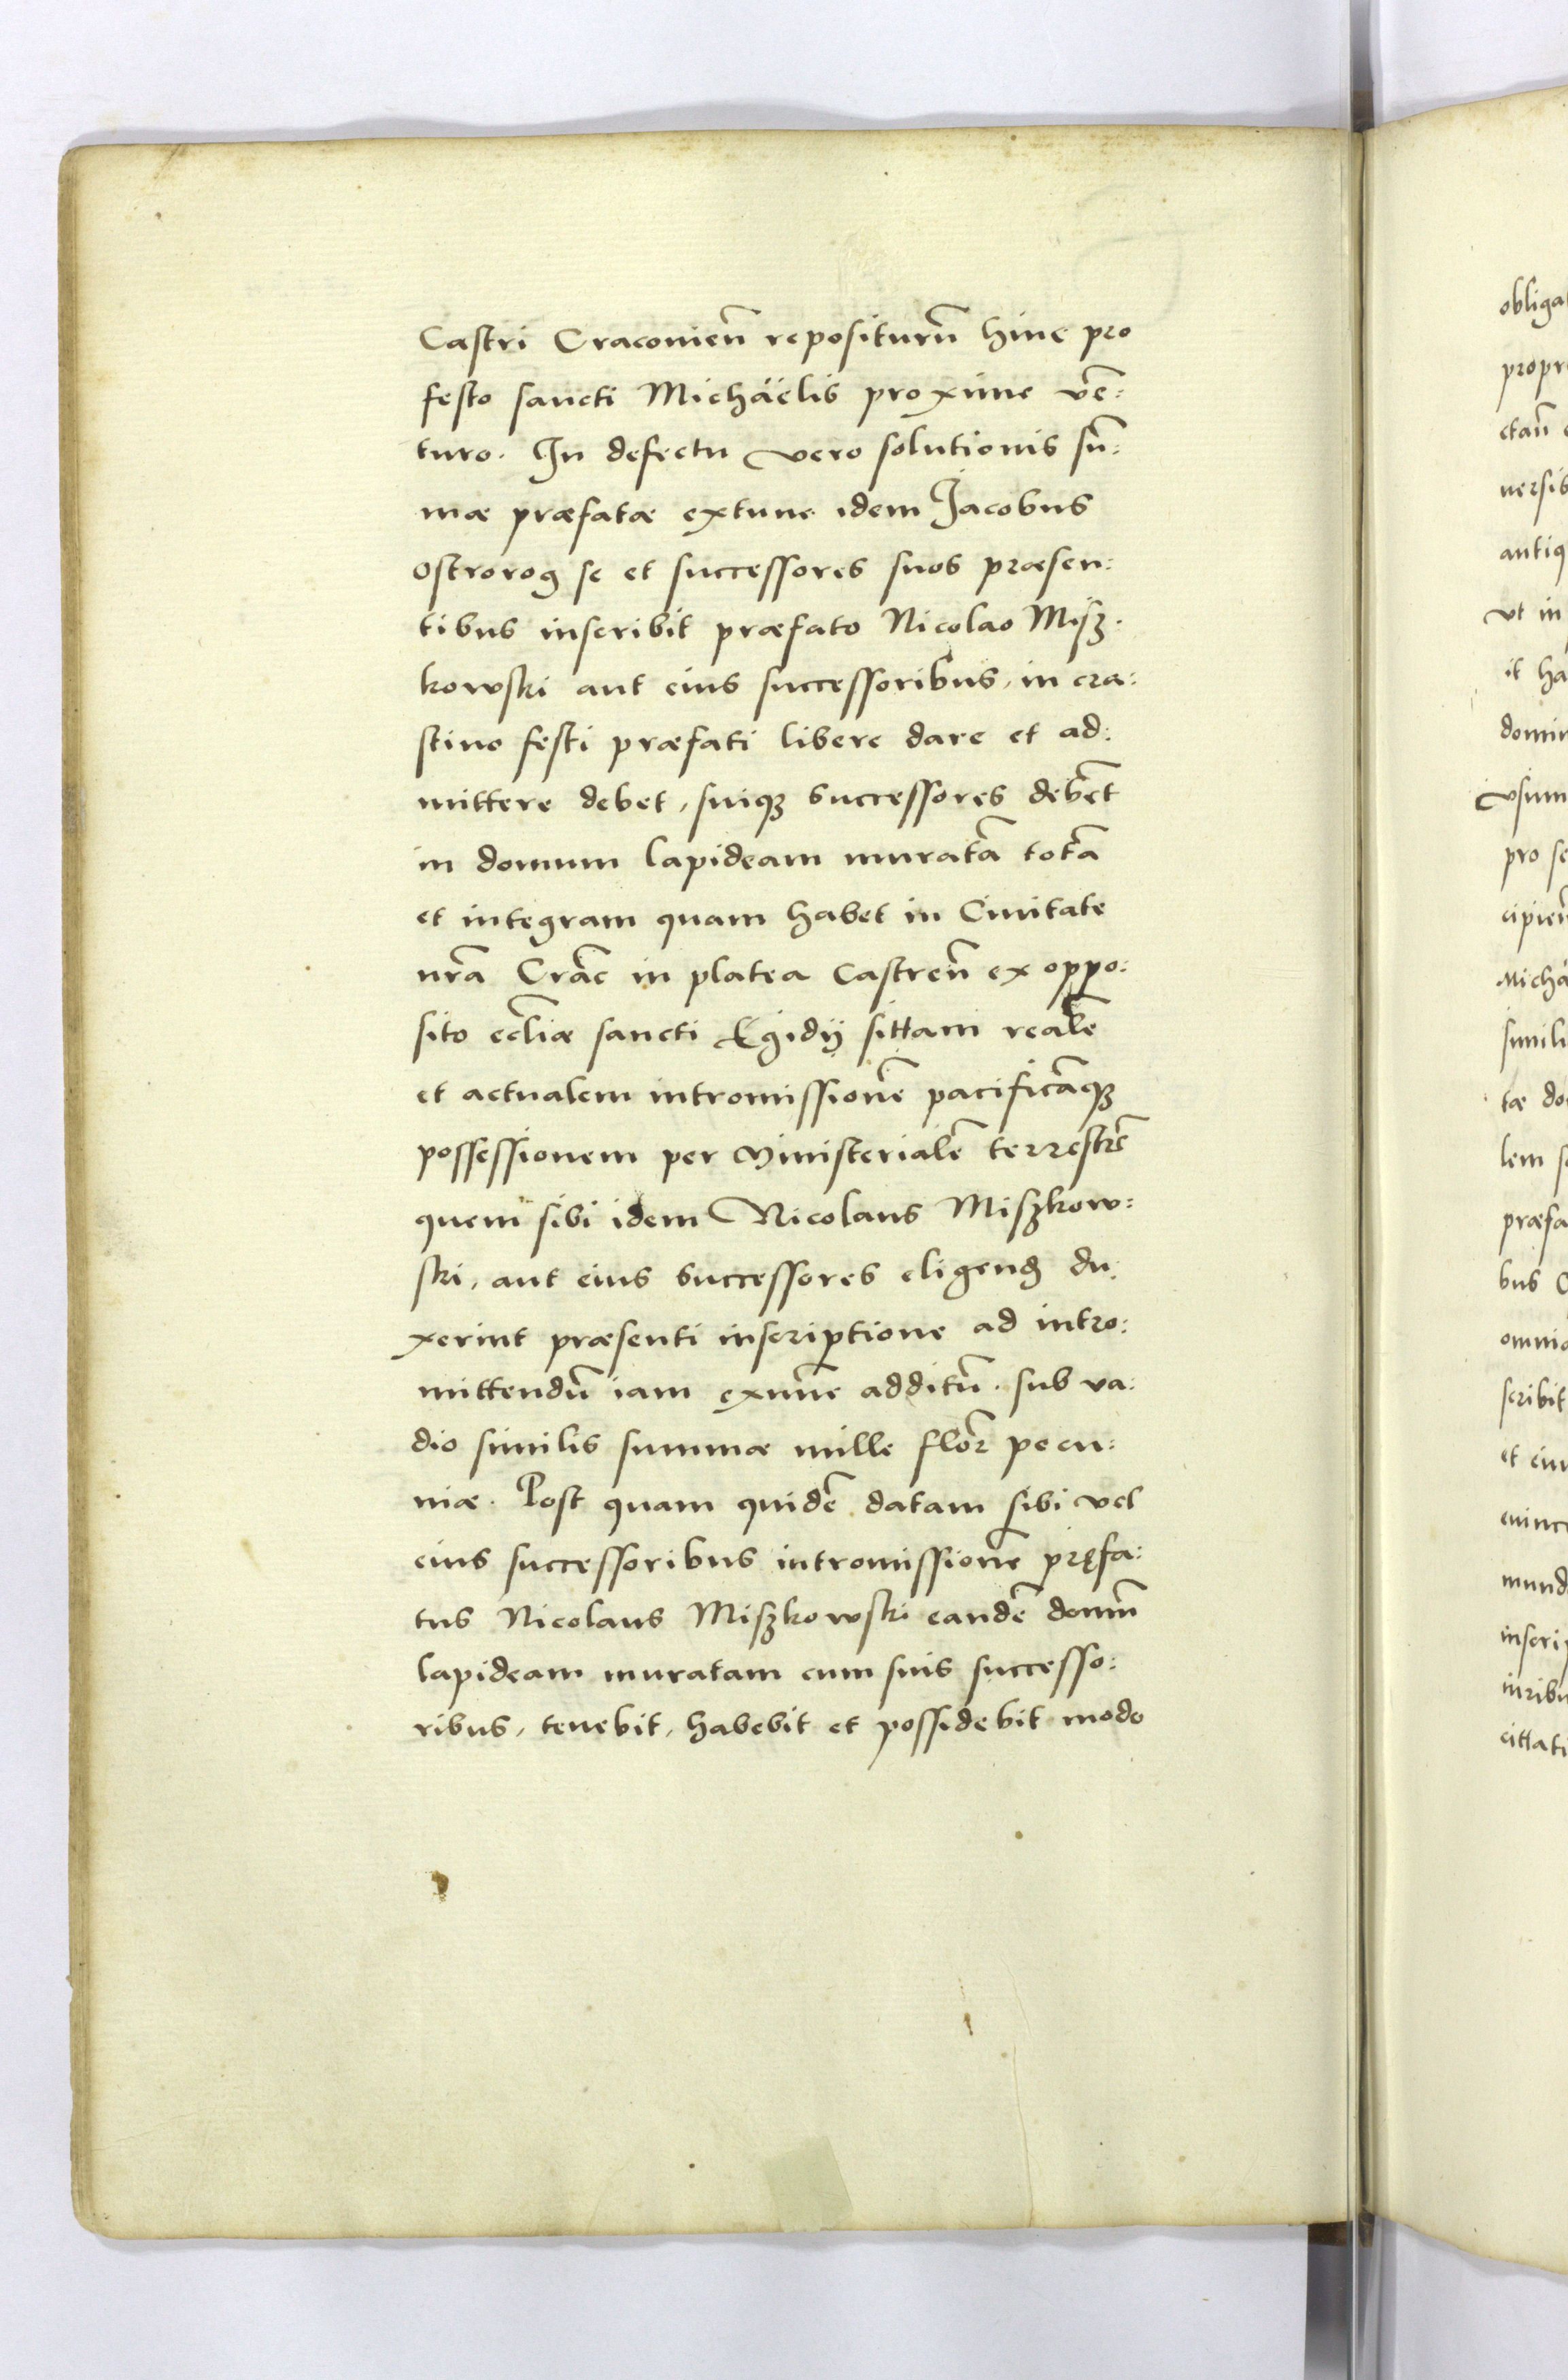 Castri Cracovieñ repositurũ hinc pro
festo sancti Michäelis proxime vẽ:
turo. In defectu vero solutionis sũ:
mæ præfatæ extunc idem Jacobus
Ostrorog se et successores suos præsen:
tibus inscribit præfato Nicolao Misz.
kowski aut eius successoribus, in cra:
stino festi præfati libere dare et ad:
mittere debet, suiqʒ successores debẽt
in domum lapideam muratã totã
et integram quam habet in Ciuitate
nr̃a Crãc in platea Castreñ ex oppo:
sito eccl̃iæ sancti Egidij sittam realẽ
et actualem intromissionẽ pacificãqʒ
possessionem per Ministerialẽ terrestrẽ
quem sibi idem Nicolaus Miszkow:
ski, aut eius successores eligend̃ du:
xerint præsenti inscriptione ad intro:
mittendũ iam extunc additũ. sub va:
dio similis summæ mille flor̃ pecu:
niæ. Post quam quidẽ datam sibi vel
eius successoribus intromissionẽ pręfa:
tus Nicolaus Miszkowski eandẽ domũ
lapideam muratam cum suis successo:
ribus, tenebit, habebit et possidebit modo
obliga
propr
ctam̃
uersis
antiq
vt in
it ha
domin
vsum
pro se
cipien
Micha
simili
tæ do
lem s
præfa
bus
omnia
scribit
et eiu
euinc
mund
inscrip
iuribu
cittati